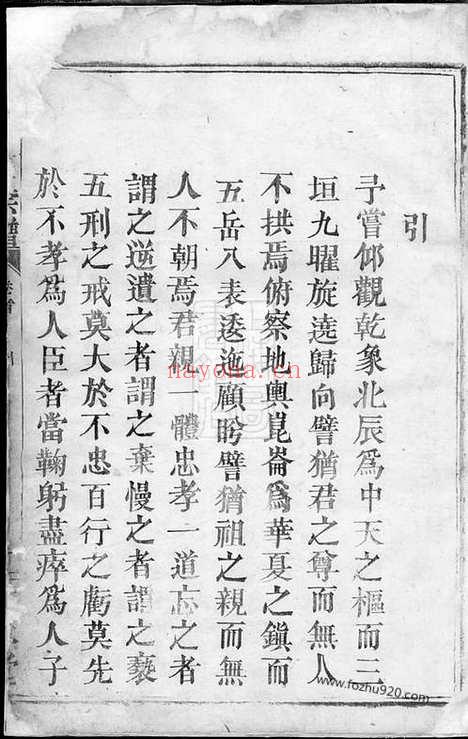 引
予嘗仰觀乾象北辰爲中天之樞而三
垣九曜旋遶歸向譬猶君之尊而無人
不拱焉俯察地輿崑崙爲華夏之鎭而
五岳八表逶迤顧盻譬猶祖之親而無
人不朝焉君親一體忠孝一道忘之者
謂之逆遺之者謂之棄慢之者謂之褻
五刑之戒莫大於不忠百行之虧莫先
於不孝爲人臣者當鞠躬盡瘁爲人子
卷首
nayona.cn
www.fozhu920.com